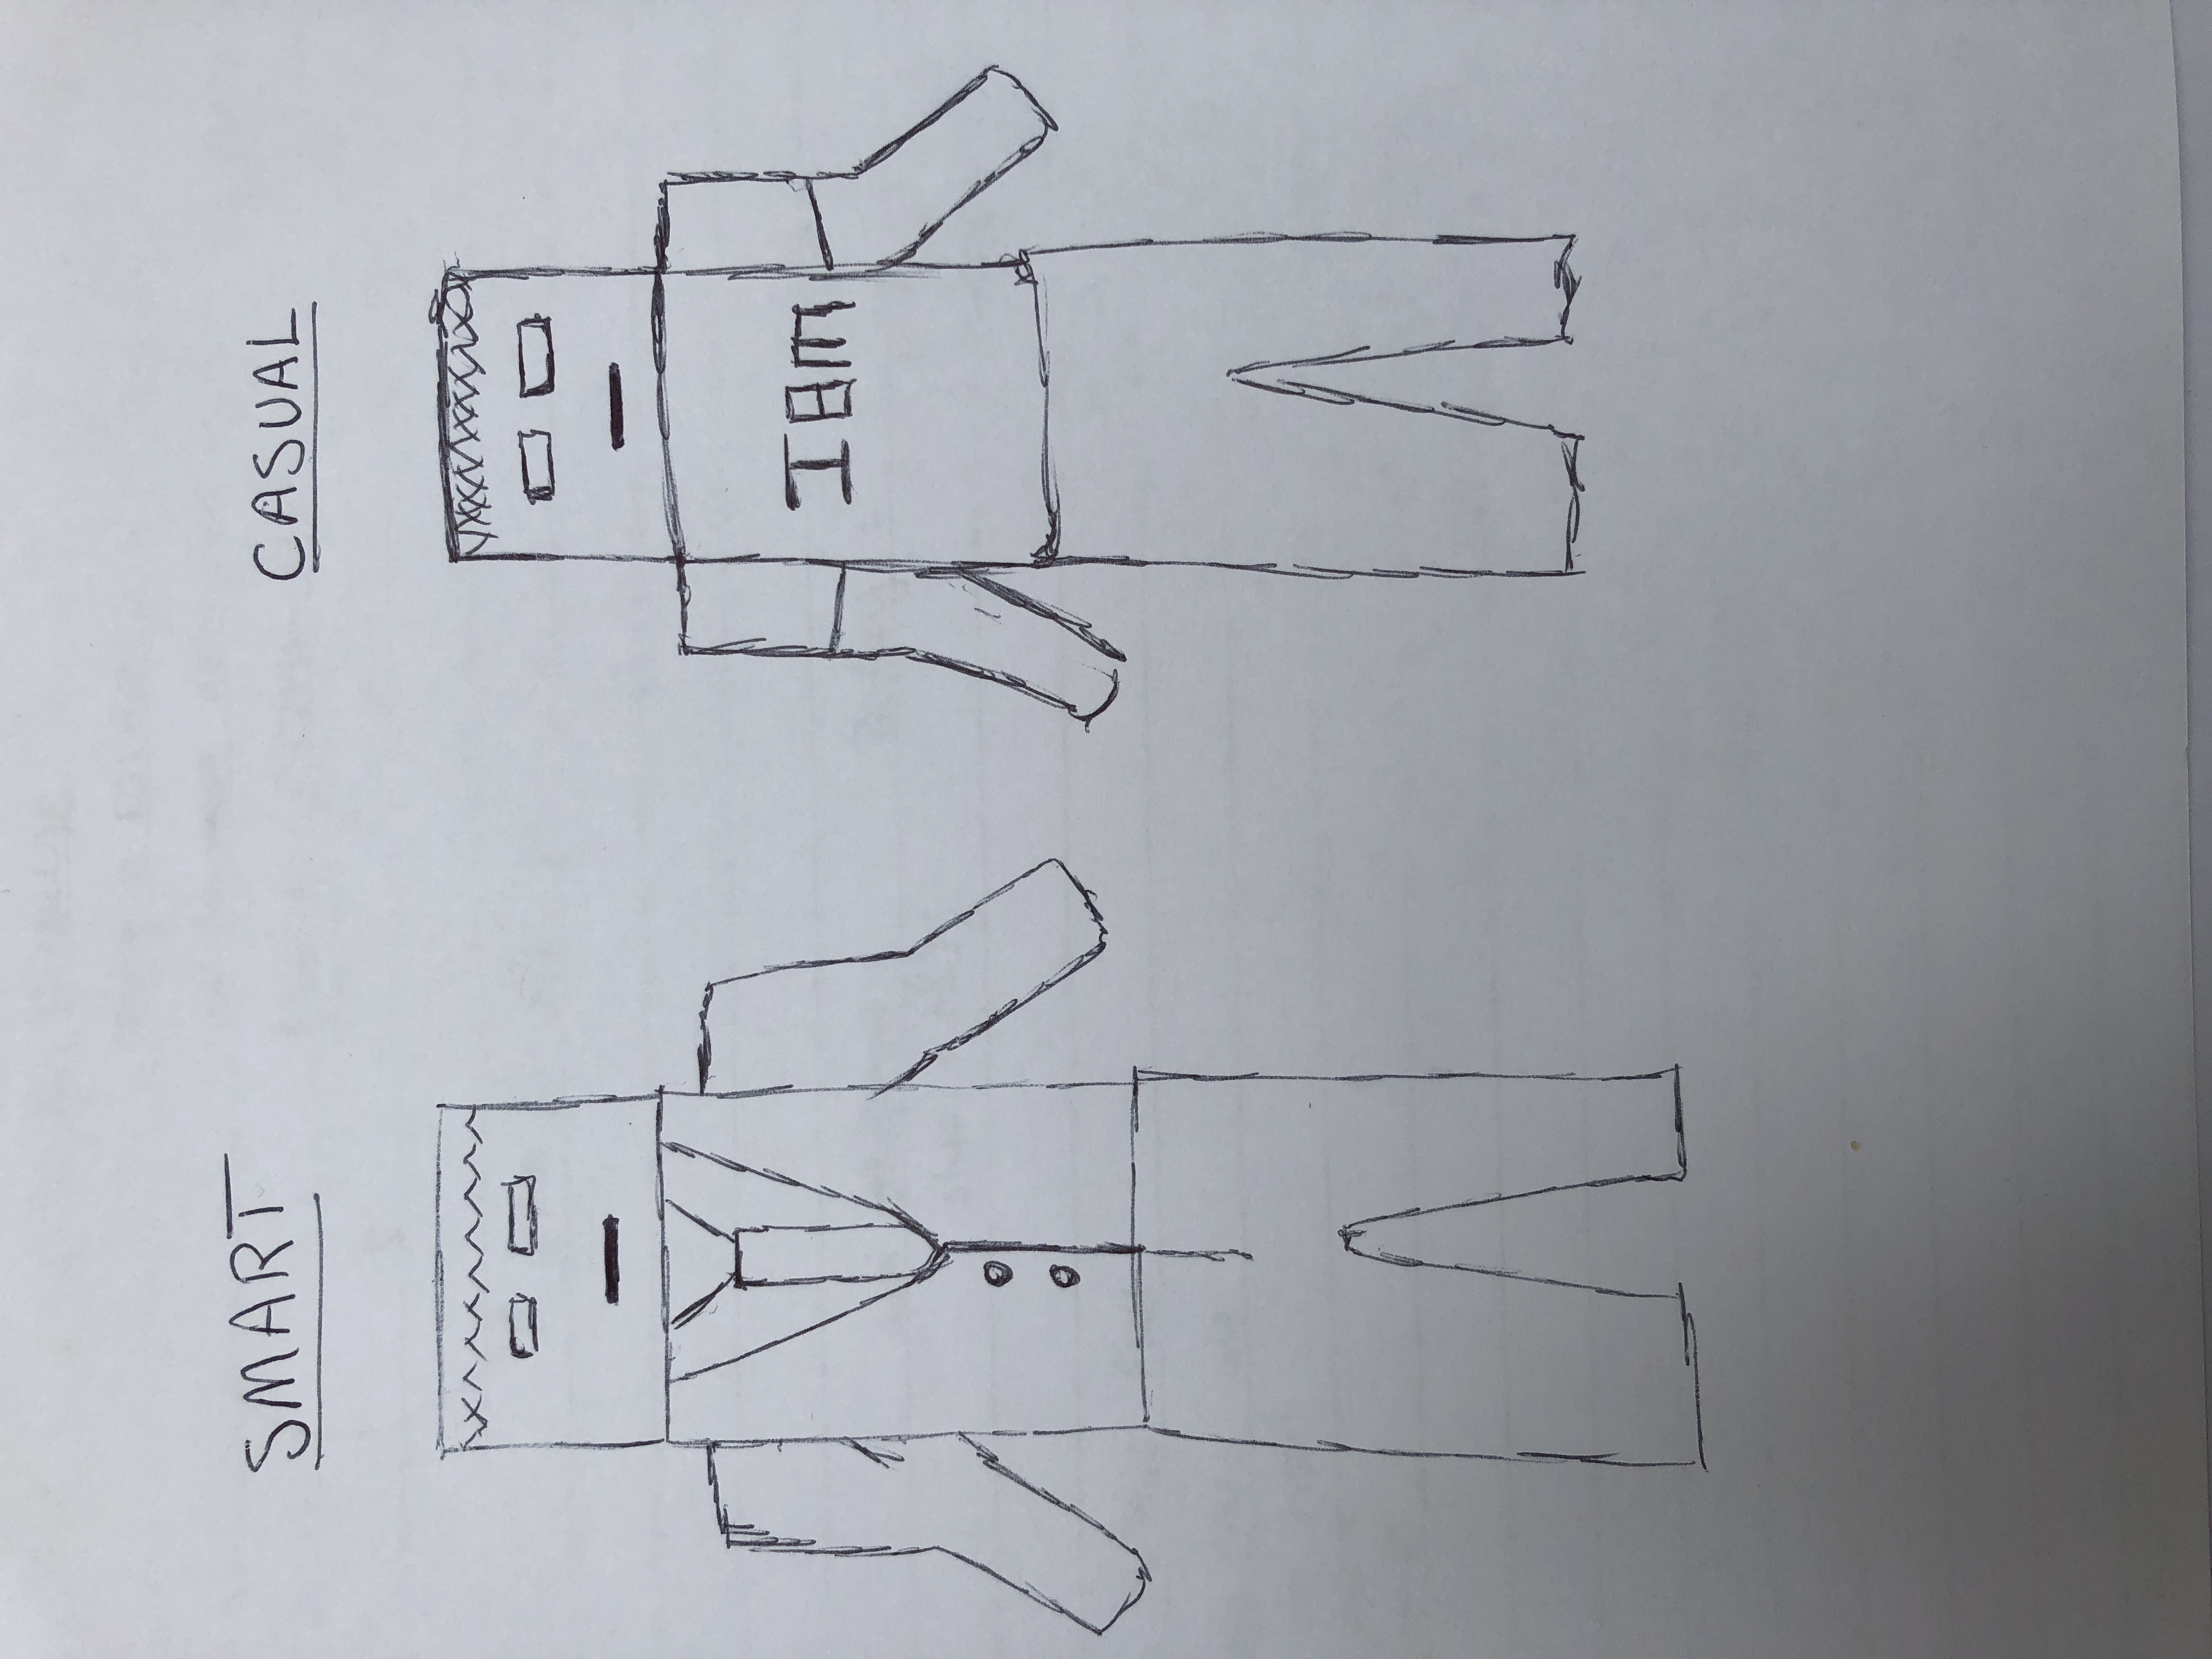 SMART
CASUAL
IBM